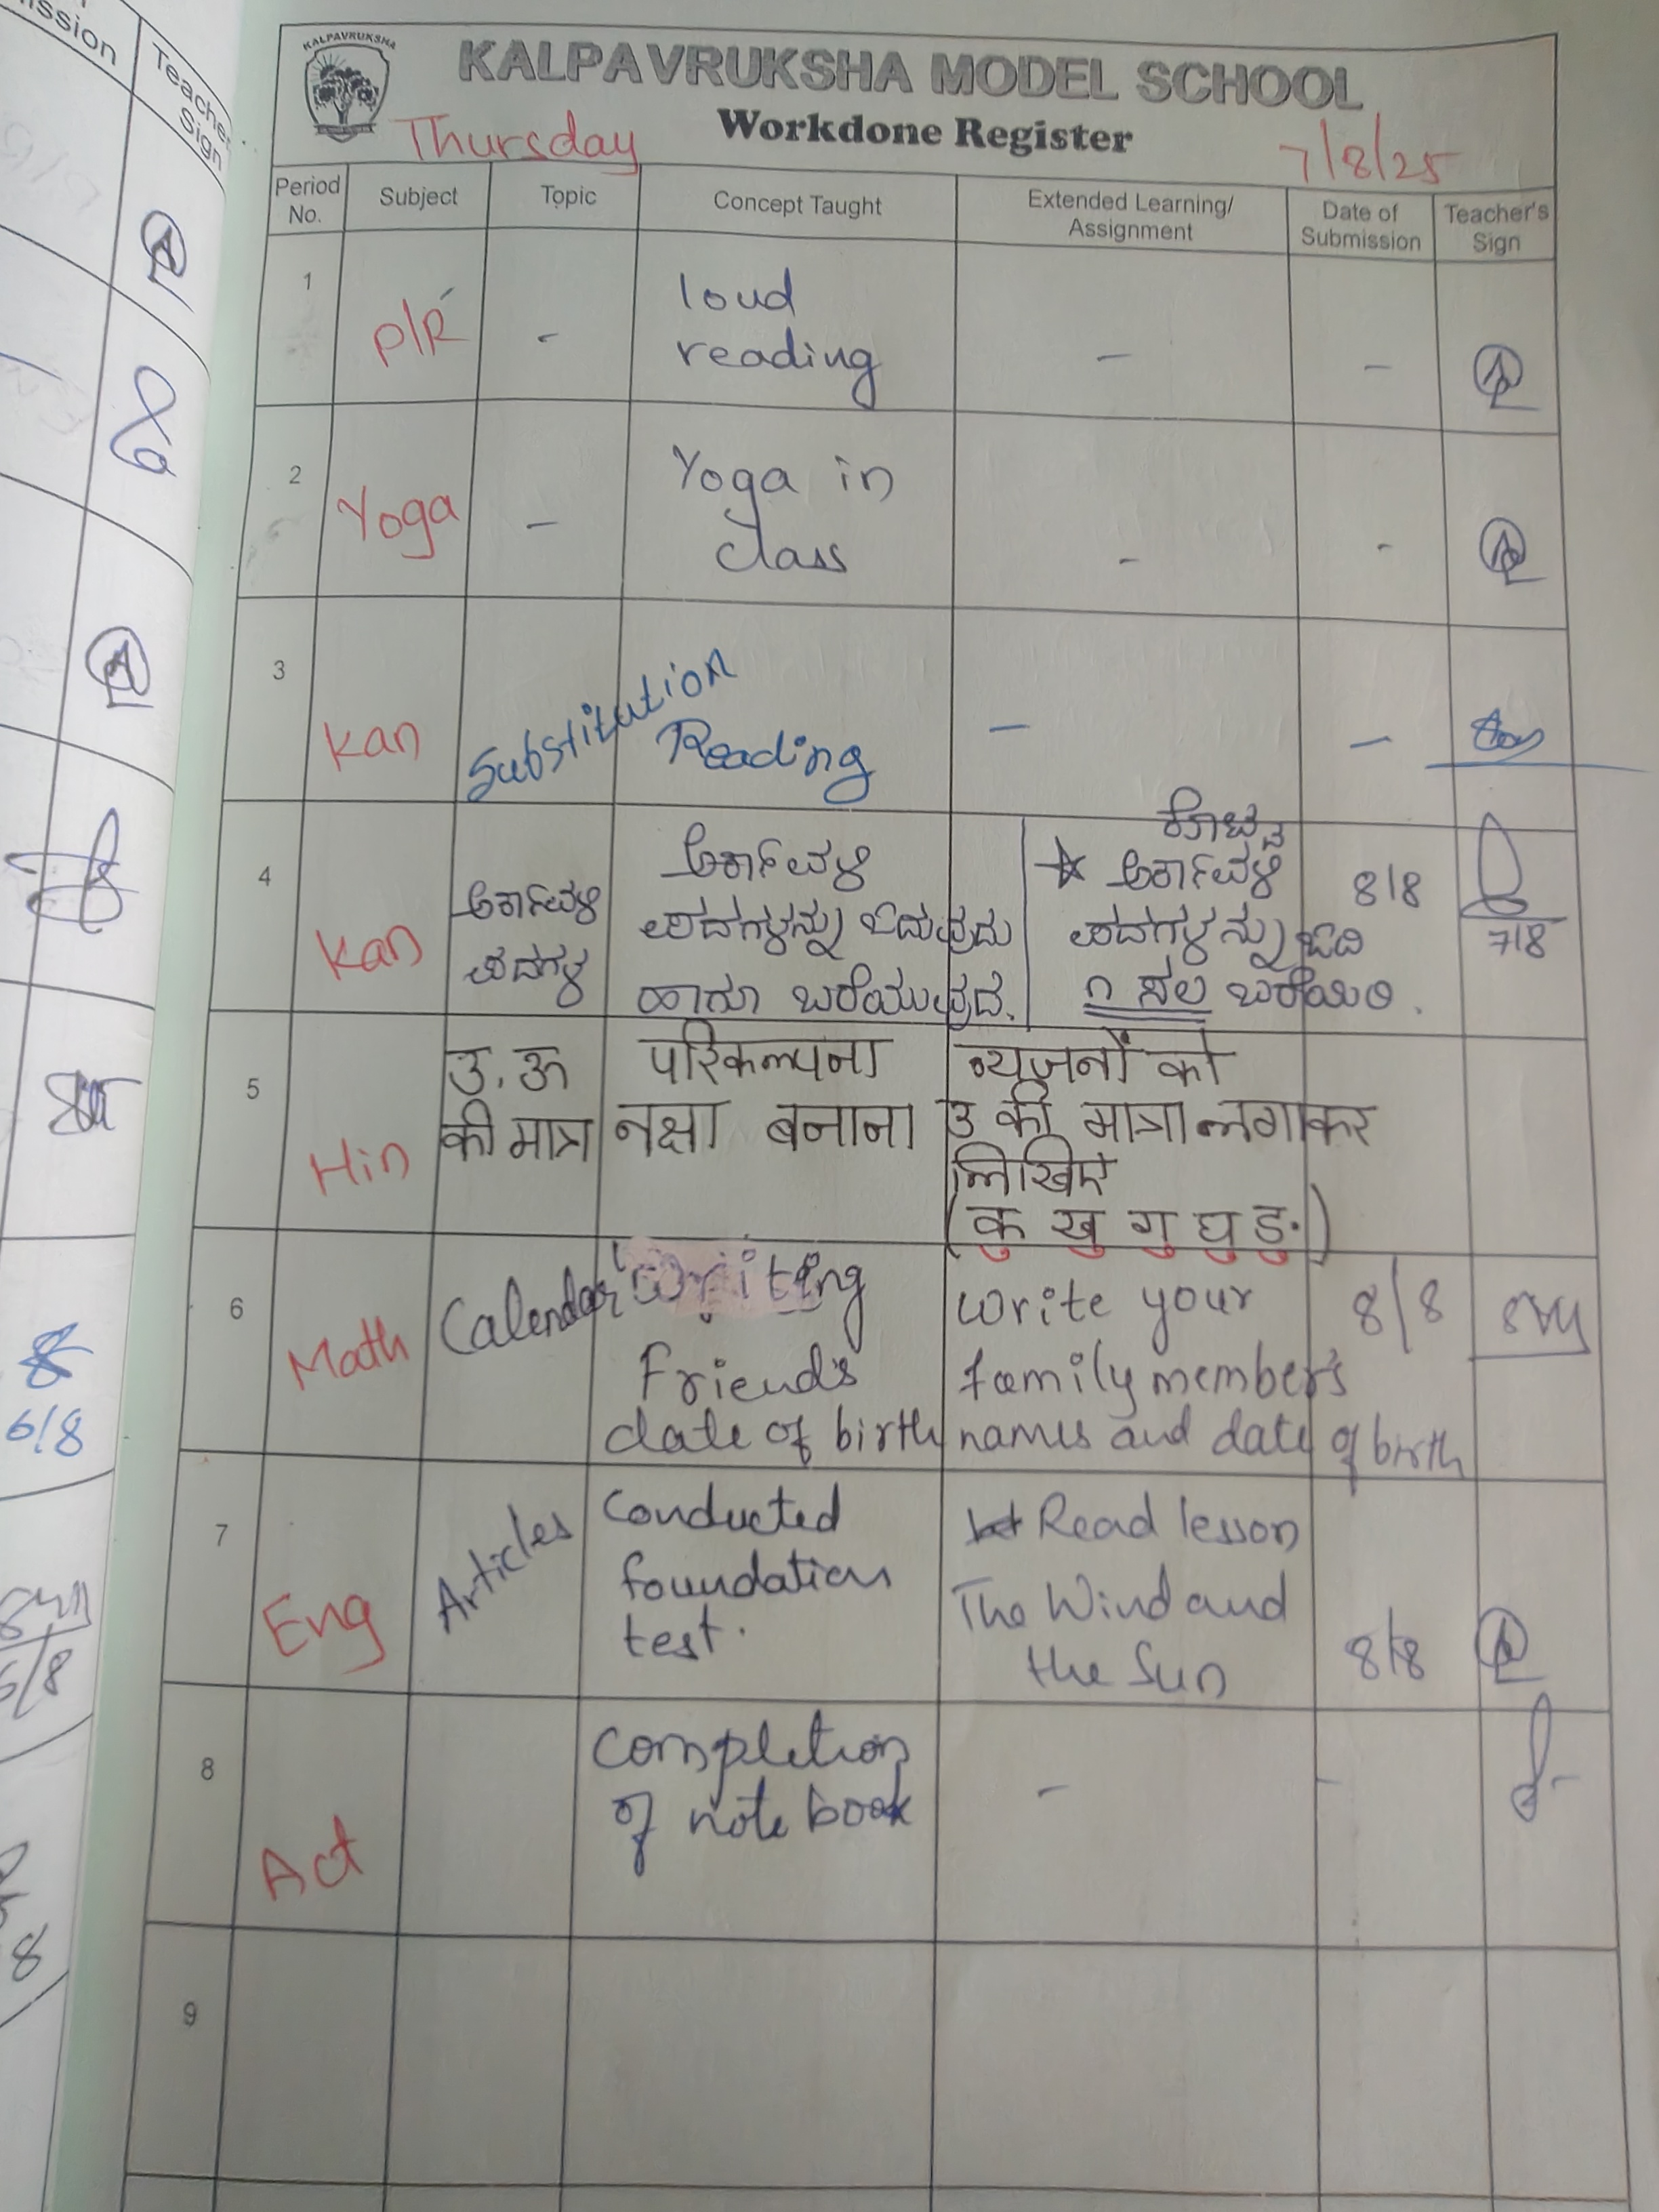 ssion
Teacher
Sign
6/8
KALPAVRUKSHA
KALPAVRUKSHA MODEL SCHOOL
Workdone Register
Thursday
7/8/25
Period No.
Subject
Topic
Concept Taught
Extended Learning/
Assignment
Date of
Submission
Teacher's
Sign
1
P/R
-
loud
reading
-
-
2
Yoga
-
Yoga in
class
-
-
3
Kan
Substitution
Reading
-
-
4
Kan
ಅರ್ಕಾವಳಿ
ಪದಗಳ
ಅರ್ಕಾವಳಿ
ಪದಗಳನ್ನು ಓದುವುದು
ಹಾಗೂ ಬರೆಯುವುದು.
ಕೊಟ್ಟ
ಅರ್ಕಾವಳಿ
ಪದಗಳನ್ನು ಓದಿ
೧ ಸಲ ಬರೆಯಿರಿ.
8/8
7/8
5
Hin
उ, ऊ
की मात्रा
परिकल्पना
नक्षा बनाना
व्यंजनों को
उ की मात्रा लगाकर
लिखिए
(कु खु गु घु ङु.)
6
Math
Calendar
Writing
Friend's
date of birth
Write your
family member's
names and date of birth
8/8
7
Eng
Articles
Conducted
foundation
test.
Read lesson
The Wind and
the Sun
8/8
8
Act
Completion
of note book
-
-
9